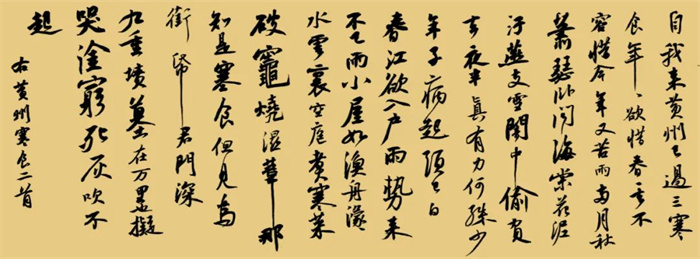 自我来黄州已過三寒
食年〻欲惜春去不
容惜今年又苦雨兩月秋
蕭瑟卧聞海棠花泥
汙燕支雪闇中偷負
去夜半真有力何殊少
年子病起頭已白
春江欲入户雨勢来
不已雨小屋如漁舟濛〻
水雲裏空庖煮寒菜
破竈燒濕葦那
知是寒食但見烏
銜帋君門深
九重墳墓在万里也擬
哭塗窮死灰吹不
起
右黄州寒食二首